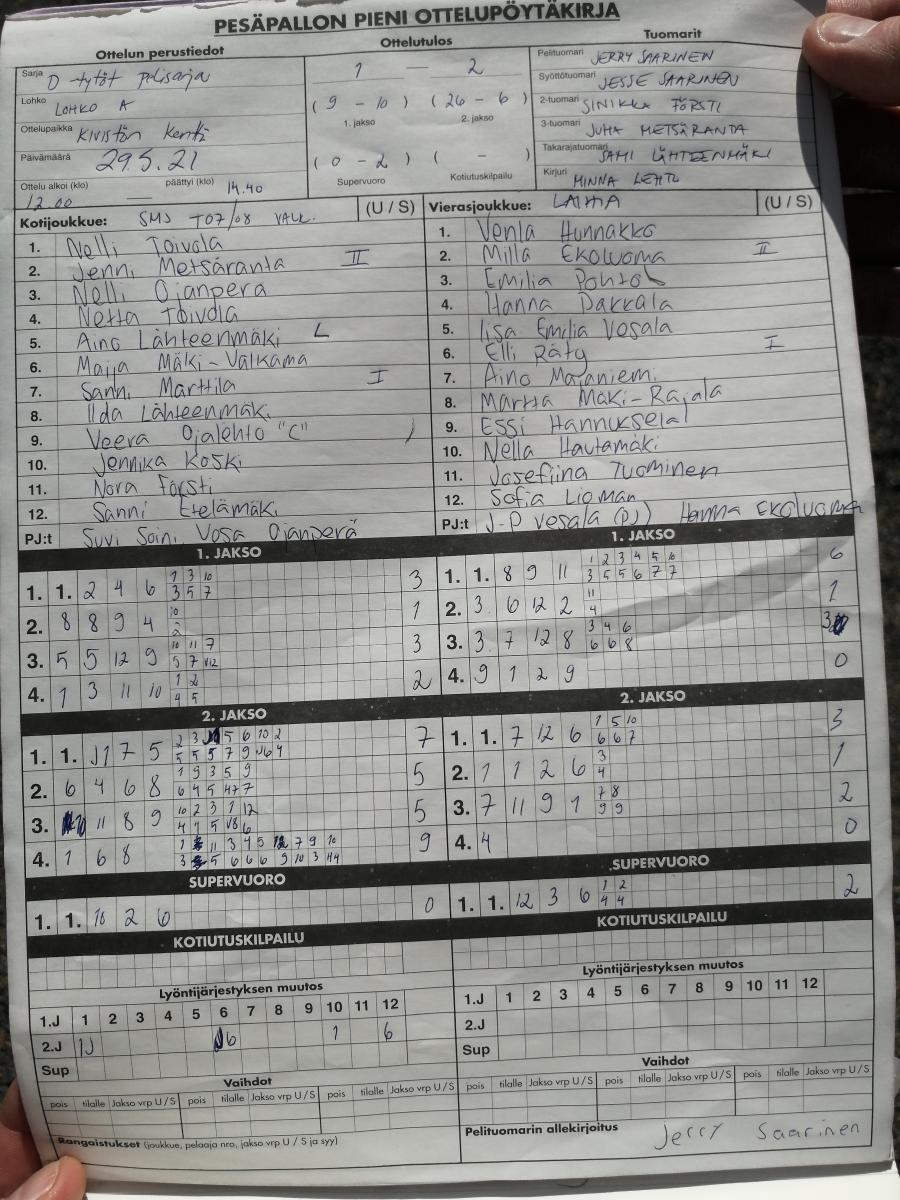 PESÄPALLON PIENI OTTELUPÖYTÄKIRJA
Ottelun perustiedot
Sarja D-tytöt pelisarja
Lohko LOHKO A
Ottelupaikka Kivistön kenttä
Päivämäärä 29.5.21
Ottelu alkoi (klo) päättyi (klo)
12.00 — 14.40
Ottelutulos
1 — 2
(9 - 10) (26 - 6)
1. jakso 2. jakso
(0 - 2) ( - )
Supervuoro Kotiutuskilpailu
Tuomarit
Pelituomari JERRY SAARINEN
Syöttötuomari JESSE SAARINEN
2-tuomari SINIKKA FÖRSTI
3-tuomari JUHA METSÄRANTA
Takarajatuomari SAMI LÄHTEENMÄKI
Kirjuri MINNA LEHTO
Kotijoukkue: SMJ T07/08 VALK. (U / S)
1. Nelli Toivola
2. Jenni Metsäranta II
3. Nelli Ojanperä
4. Netta Toivola
5. Aino Lähteenmäki L
6. Maija Mäki-Valkama
7. Sanni Marttila I
8. Ilda Lähteenmäki
9. Veera Ojalehto "C"
10. Jennika Koski
11. Nora Försti
12. Sanni Etelämäki
PJ:t Suvi Soini, Vesa Ojanperä
Vierasjoukkue: LAIHIA (U / S)
1. Venla Hunnakko
2. Milla Ekoluoma II
3. Emilia Pohto
4. Hanna Pakkala
5. Iisa Emilia Vesala
6. Elli Räty I
7. Aino Majaniemi
8. Martta Mäki-Rajala
9. Essi Hannuksela
10. Nella Hautamäki
11. Josefiina Tuominen
12. Sofia Lioman
PJ:t J-P Vesala (PJ) Hanna Ekoluoma
1. JAKSO
1. 1. 2 4 6
1 3 10
3 5 7
3
2. 8 8 9 4
10
2
1
3. 5 5 12 9
10 11 7
5 7 V12
3
4. 1 3 11 10
1 2
4 5
2
1. JAKSO
1. 1. 8 9 11
1 2 3 4 5 10
3 5 5 6 7 7
6
2. 3 6 12 2
11
4
1
3. 3 7 12 8
3 4 6
6 6 8
3
4. 9 1 2 9
0
2. JAKSO
1. 1. J1 7 5
7
2. 6 4 6 8
1 9 3 5 9
6 4 5 47 7
5
3. 10 11 8 9
10 2 3 1 12
5
4. 1 6 8
9
2. JAKSO
1. 1. 7 12 6
1 5 10
6 6 7
3
2. 1 1 2 6
3
4
1
3. 7 11 9 1
7 8
9 9
2
4. 4
0
SUPERVUORO
1. 1. 10 2 6
0
SUPERVUORO
1. 1. 12 3 6
1 2
4 4
2
KOTIUTUSKILPAILU
KOTIUTUSKILPAILU
Lyöntijärjestyksen muutos
1.J 1 2 3 4 5 6 7 8 9 10 11 12
2.J 1J J6 1 6
Sup
Lyöntijärjestyksen muutos
1.J 1 2 3 4 5 6 7 8 9 10 11 12
2.J
Sup
Vaihdot
pois tilalle Jakso vrp U / S pois tilalle Jakso vrp U / S pois tilalle Jakso vrp U / S
Vaihdot
pois tilalle Jakso vrp U / S pois tilalle Jakso vrp U / S pois tilalle Jakso vrp U / S
Rangaistukset (joukkue, pelaaja nro, jakso vrp U / S ja syy)
Pelituomarin allekirjoitus Jerry Saarinen